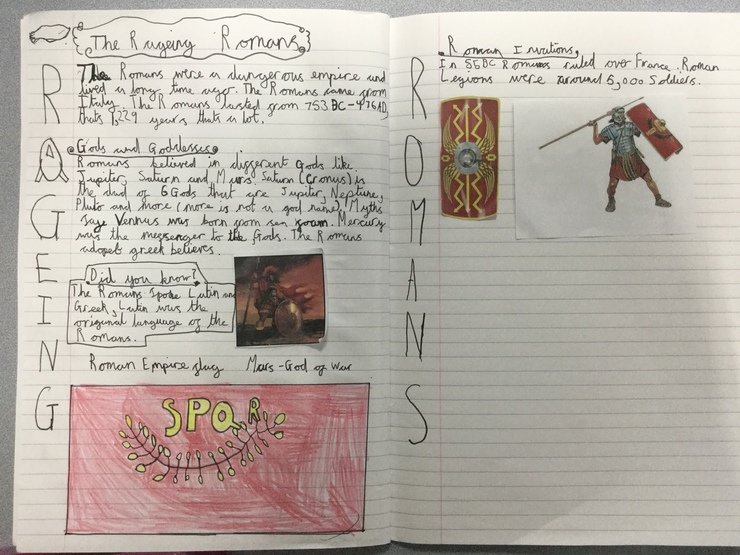 The Rageing Romans
RAGEING
The Romans were a dangerous empire and
lived a long time ago. The Romans came from
Italy. The Romans lasted from 753 BC-476AD,
thats 1,229 years thats a lot.
Gods and Goddesses
Romans believed in different Gods like
Jupiter, Saturn and Mars. Saturn (Cronus) is
the dad of 6 Gods that are Jupiter, Neptune,
Pluto and more (more is not a god name). Myths
say Vennus was born from sea foam. Mercury
was the messenger to the Gods. The Romans
adopet greek believes.
Did you know?
The Romans spoke Latin and
Greek, Latin was the
original language of the
Romans.
Roman Empire flag
Mars-God of War
SPQR
ROMANS
Roman Invations
In 55BC Romans ruled over France. Roman
Legions were around 5,000 Soldiers.